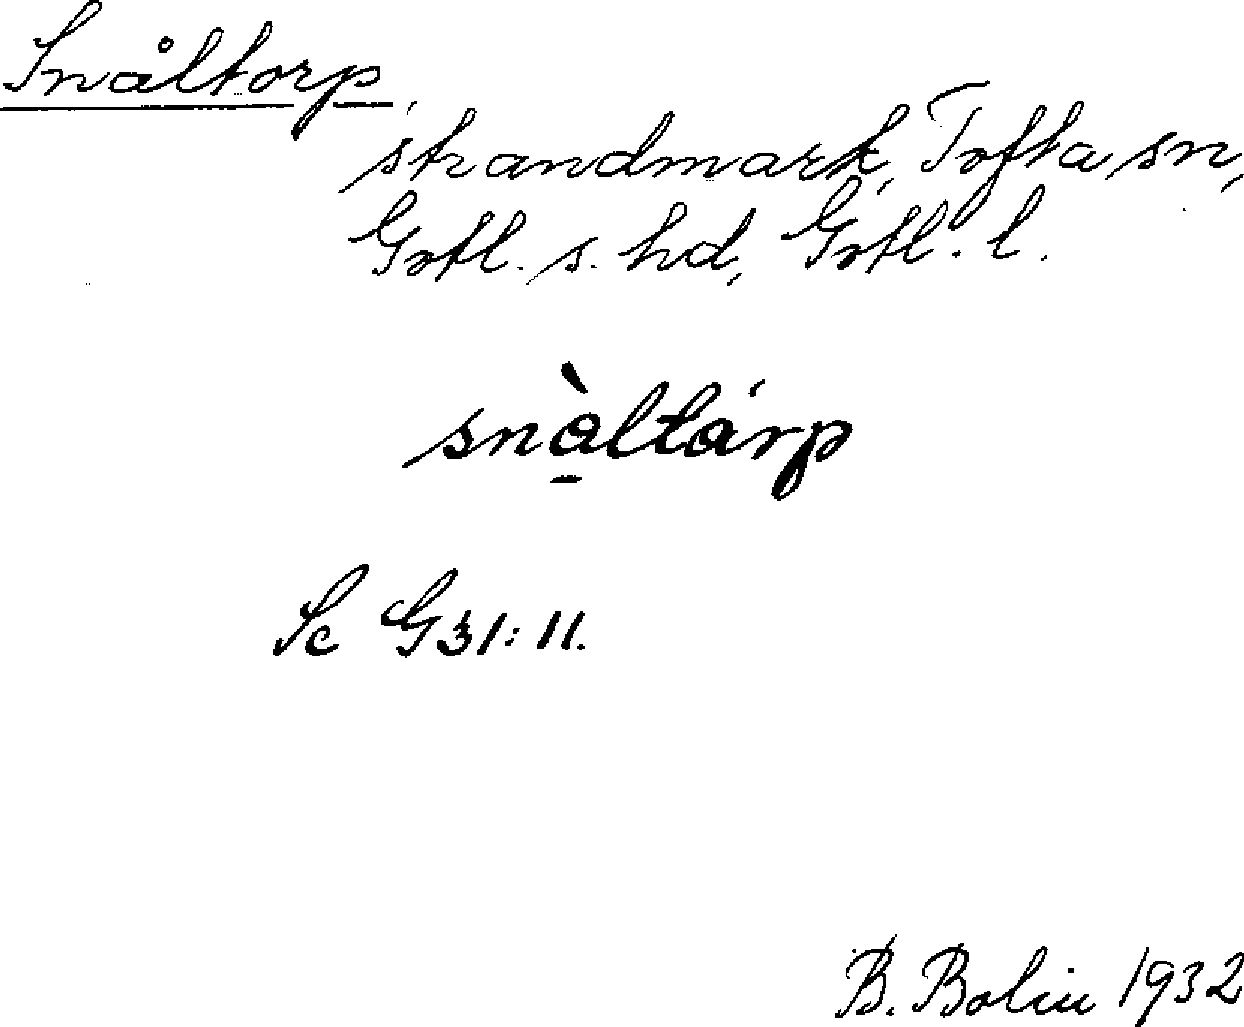 Snåltorp,
strandmark, Tofta sn,
Gotl. s. hd, Gotl. l.
snàltárp
Sc G31:11.
B. Bolin 1932